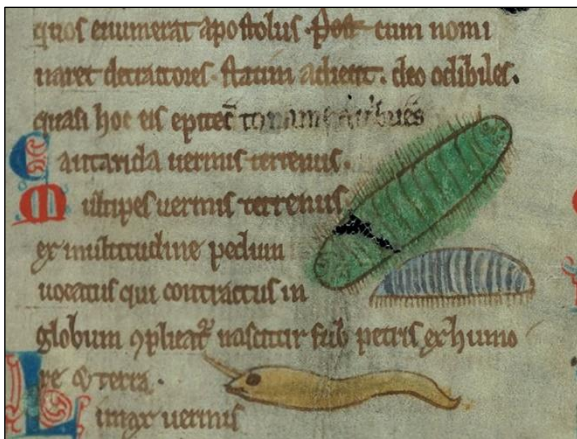 quos enumerat apostolus. Post cum nomi
naret detractores. statim adiecit. deo odibiles.
quasi hoc eis epitet̄
Cantarida uermis terrenus.
Multipes uermis terrenus
ex multitudine pedum
uocatus qui contractus in
globum ꝯplicat᷑ nascitur sub petris ex humo
re & terra.
Limax uermis